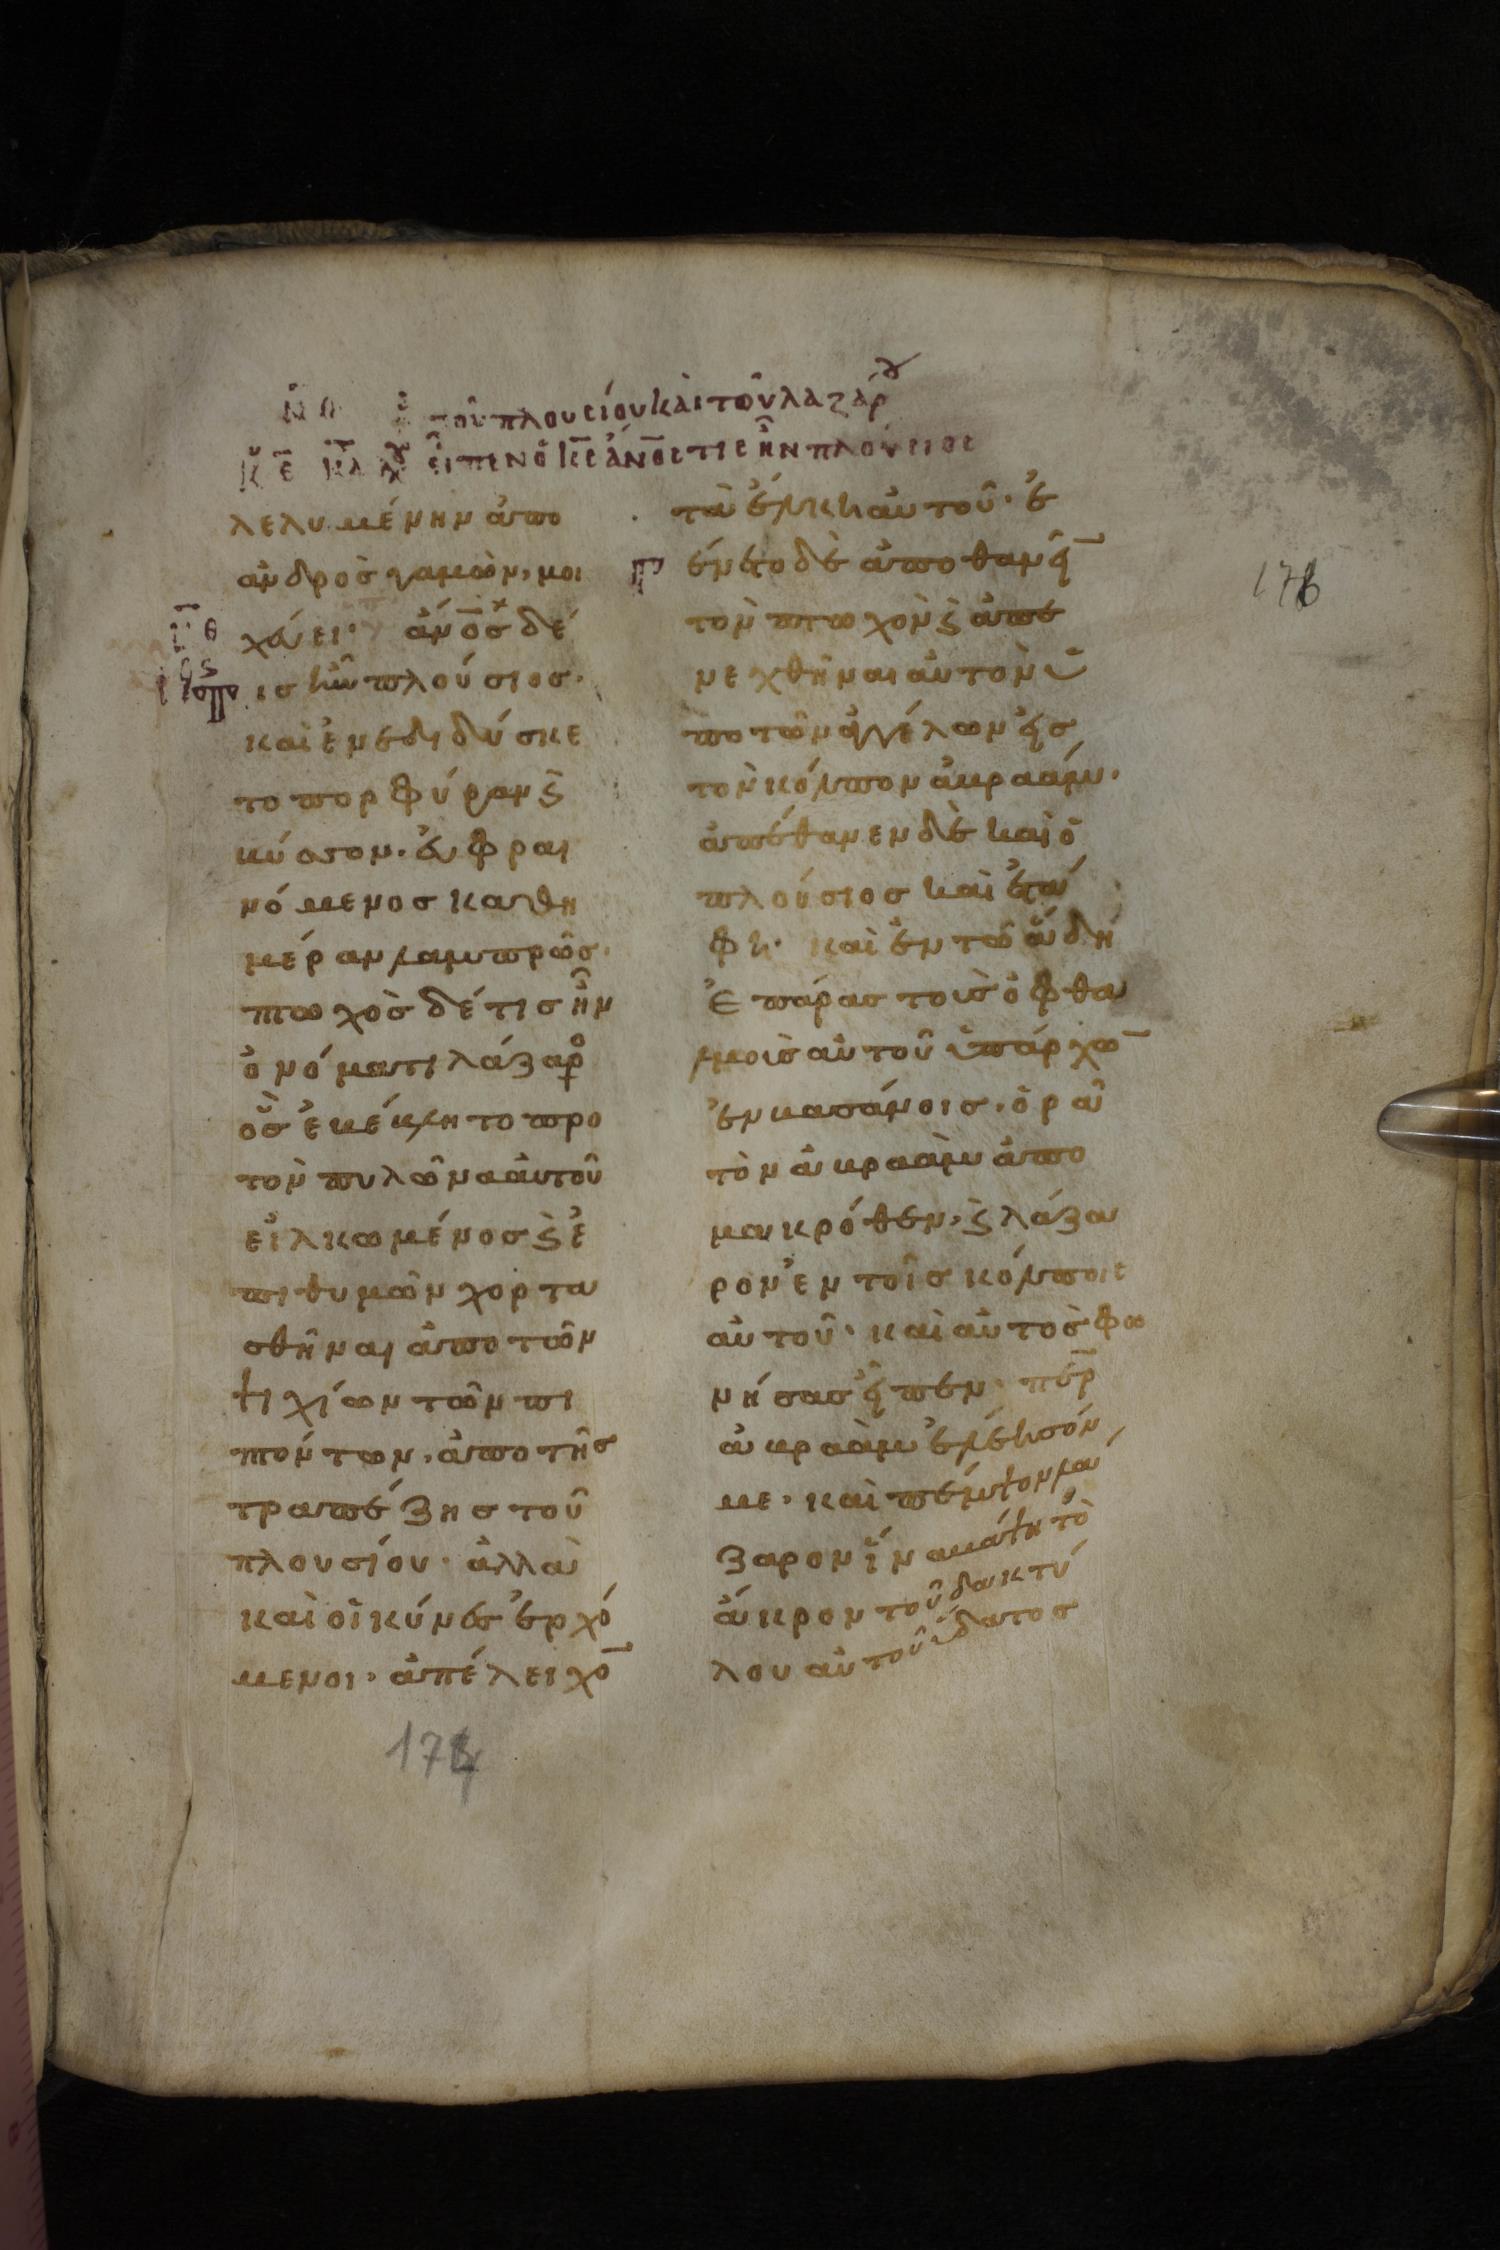 τοῦ πλουσίου καὶ τοῦ λαζάρου
εἶπεν ὁ κς ἀνος τις ἦν πλούσιος
λελυμένην ἀπο
ανδρὸς γαμῶν, μοι
χεύει· ἄνος δέ
ις ἦν πλούσιος·
καὶ ἐνεδιδύσκε
το πορφύραν ϛ
βύσσον· ἐυφραι
νόμενος καθη
μέραν λαμπρῶς·
πτωχὸς δέ τις ἦν
ὀνόματι λάζαρο
ὃς ἐβέβλητο προ
τὸν πυλῶνα ἀυτοῦ
εἱλκωμένος ϛ ἐ
πιθυμῶν χορτα
σθῆναι ἀπο τῶν
ψιχίων τῶν πι
πτόντων· ἀπο τῆς
τραπέζης τοῦ
πλουσίου· ἀλλὰ
καὶ οἱ κύνες ἐρχό
μενοι· ἀπέλειχο̄
τὰ ἕλκη ἀυτοῦ· ἐ
γένετο δὲ ἀποθανεῖ̄
τὸν πτωχὸν ϛ ἀπε
νεχθῆναι ἀυτὸν ὑ
πο τῶν ἀγγέλων εἰς
τὸν κόλπον ἀβραάμ·
ἀπέθανεν δὲ καὶ ὁ
πλούσιος καὶ ἐτά
φη· καὶ ἐν τῶ ἅδη
ἐπάρας τοὺς ὀφθα
λμοὺς ἀυτοῦ ὑπάρχω̄
ἐν βασάνοις· ὁρᾶ
τὸν ἀβραὰμ ἀπο
μακρόθεν, ϛ λάζα
ρον ἐν τοῖς κόλποις
αὐτοῦ· καὶ αὐτὸς φω
νήσας εἶπεν· πέρ
ἀβραὰμ ἐλέησόν
με· καὶ πέμψον λά
ζαρον ἵνα βάψη τὸ
ἄκρον τοῦ δακτύ
λου αὐτοῦ ὕδατος
176
174